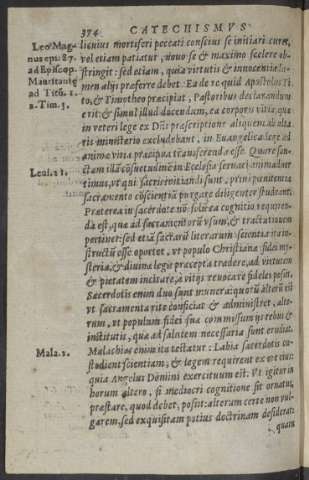 374 CATECHISMVS
Leo Mag-
nus epi: 87.
ad Episcop.
Mauritaniæ
ad Titũ. 1.
1. Tim. 3.
Leui. 21.
Mala. 2.
licuius mortiferi peccati conscius se initiari curet,
vel etiam patiatur, nouo se & maximo scelere ob-
stringit: sed etiam, quia virtutis & innocentiæ lu-
men alijs præferre debet. Ea de re quid Apostolus Ti
to, & Timotheo præcipiat, Pastoribus declarandum
erit: & simul illud docendum, ea corporis vitia, quæ
in veteri lege ex Dñi præscriptione aliquem ab alta
ris ministerio excludebant, in Euangelica lege ad
animæ vitia præcipuè transferenda esse. Quare san-
ctam illã cõsuetudinẽ in Ecclesia seruari animaduer
timus, vt qui sacris initiandi sunt, prius pœnitentiæ
sacramento cõscientiã purgare diligenter studeant.
Præterea in sacerdote nõ solũ ea cognitio requiren-
da est, quæ ad sacramentorũ vsum, & tractationem
pertinet: sed etiã sacrarũ literarum scientia ita in-
structũ esse oportet, vt populo Christianæ fidei my-
steria, & diuinæ legis præcepta tradere, ad virtutem
& pietatem incitare, à vitijs reuocare fideles possit.
Sacerdotis enim duo sunt munera: quorũ alterũ est
vt sacramenta rite conficiat & administret, alte-
rum, vt populum fidei suæ commissum ijs rebus &
institutis, quæ ad salutem necessaria sunt erudiat.
Malachias enim ita testatur: Labia sacerdotis cu-
stodient scientiam, & legem requirent ex ore eius:
quia Angelus Domini exercituum est. Vt igitur in
horum altero, si mediocri cognitione sit ornatus,
præstare, quod debet, possit: alterum certe non vul-
garem, sed exquisitam potius doctrinam desiderat:
quam